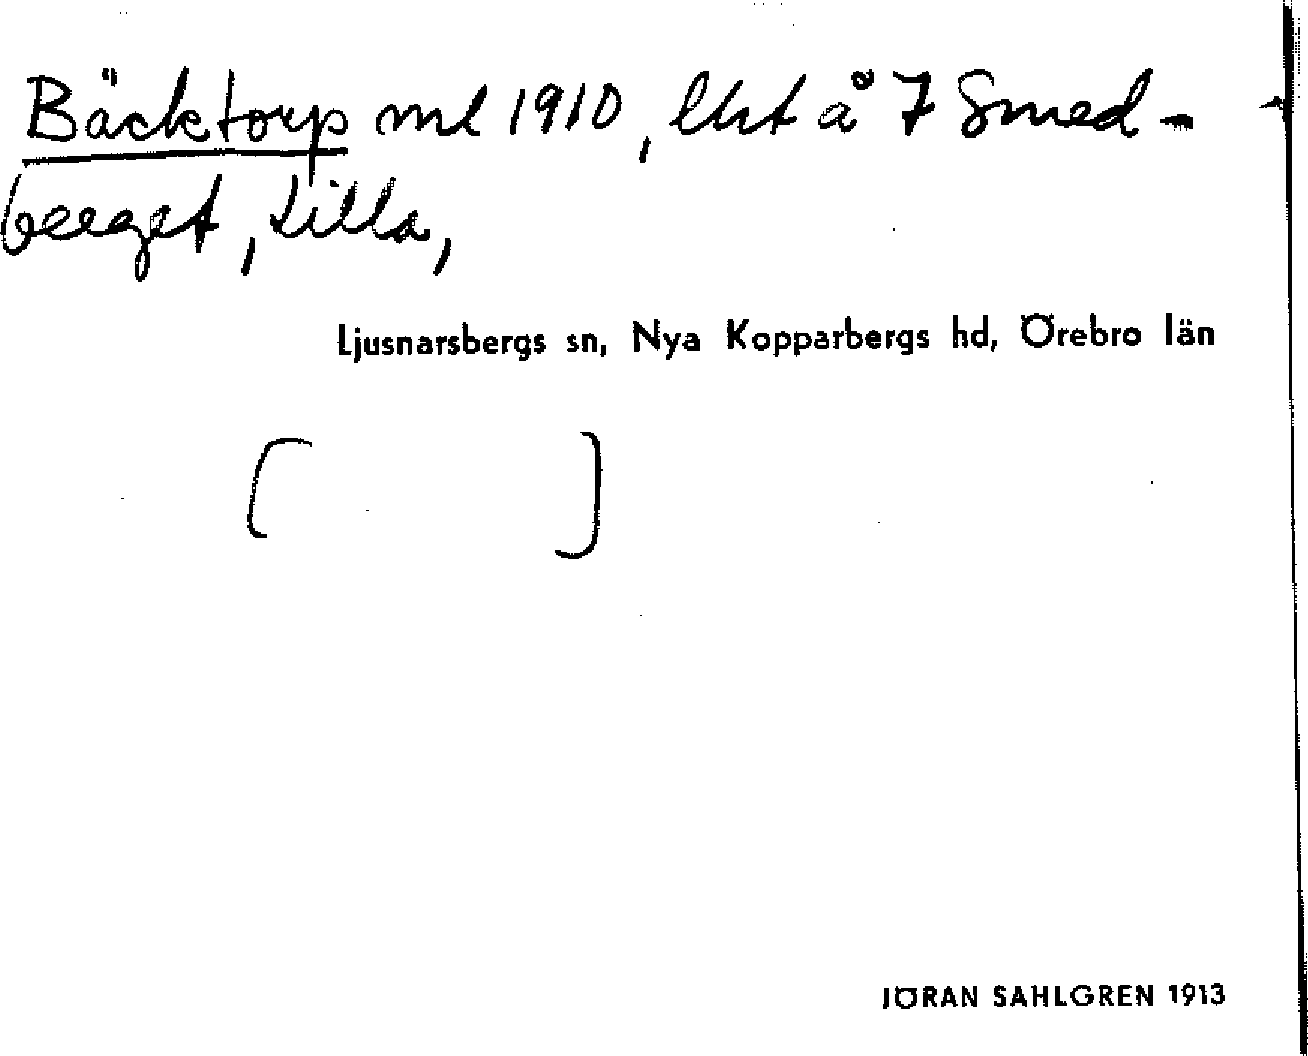 Bäcktorp ml 1910, lht å 7 Smed-
berget, Lilla,
Ljusnarsbergs sn, Nya Kopparbergs hd, Örebro län
[ ]
JÖRAN SAHLGREN 1913